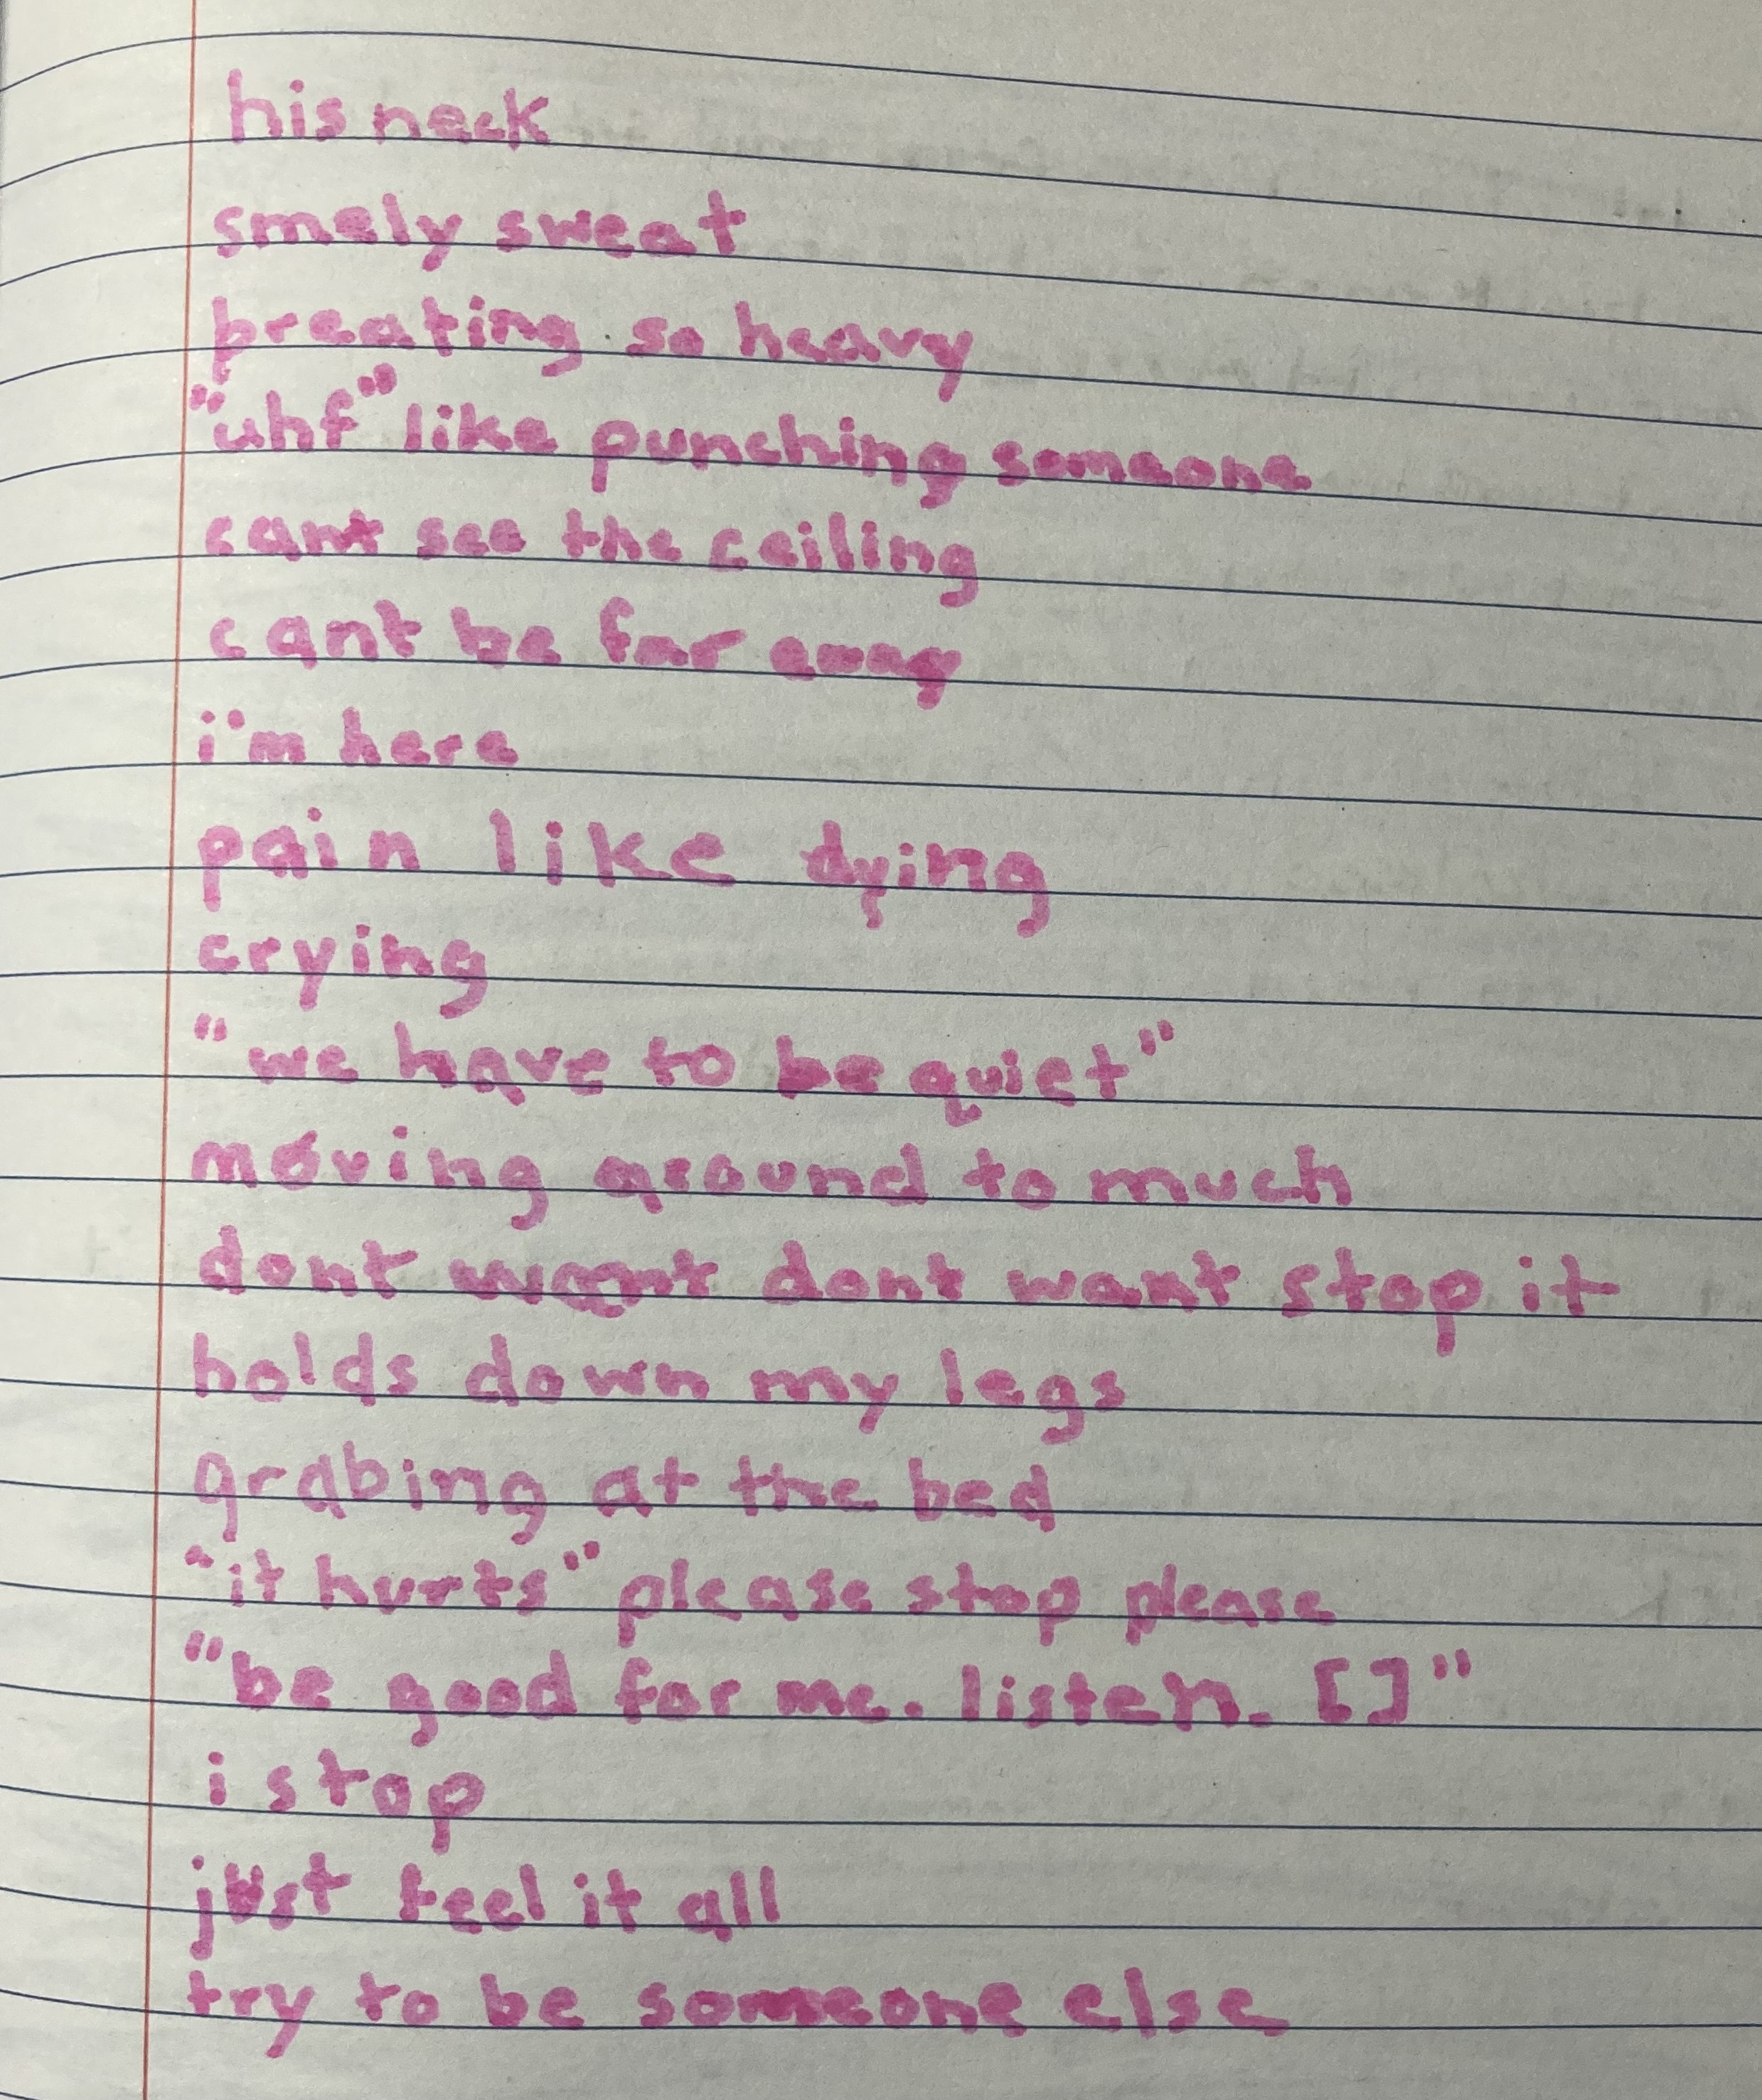 his neck
smely sweat
breating so heavy
"uhf" like punching someone
cant see the ceiling
cant be far away
i'm here
pain like dying
crying
"we have to be quiet"
moving around to much
dont want dont want stop it
holds down my legs
grabing at the bed
"it hurts" please stop please
"be good for me. listen. []"
i stop
just feel it all
try to be someone else